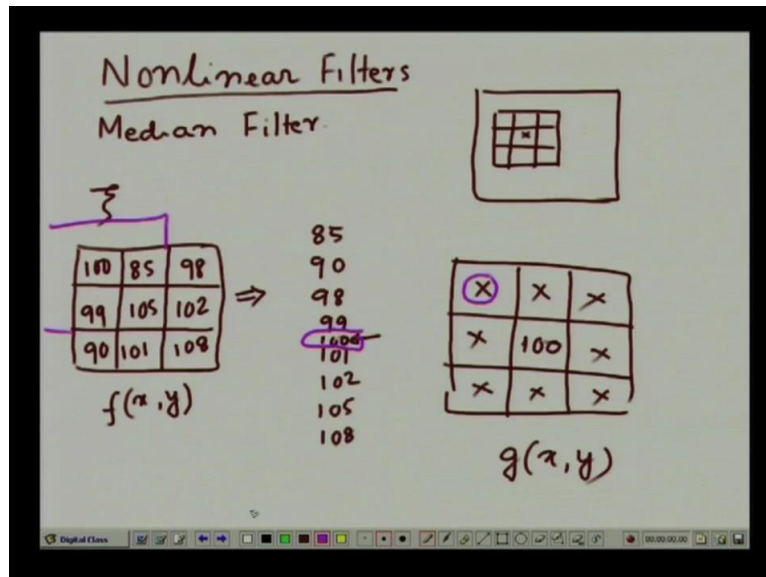 Nonlinear Filters
Median Filter
100 85 98
99 105 102
90 101 108
f(x,y)
⇒
85
90
98
99
100
101
102
105
108
×
× × ×
× 100 ×
× × ×
g(x,y)
Digital Class
00:00:00.00